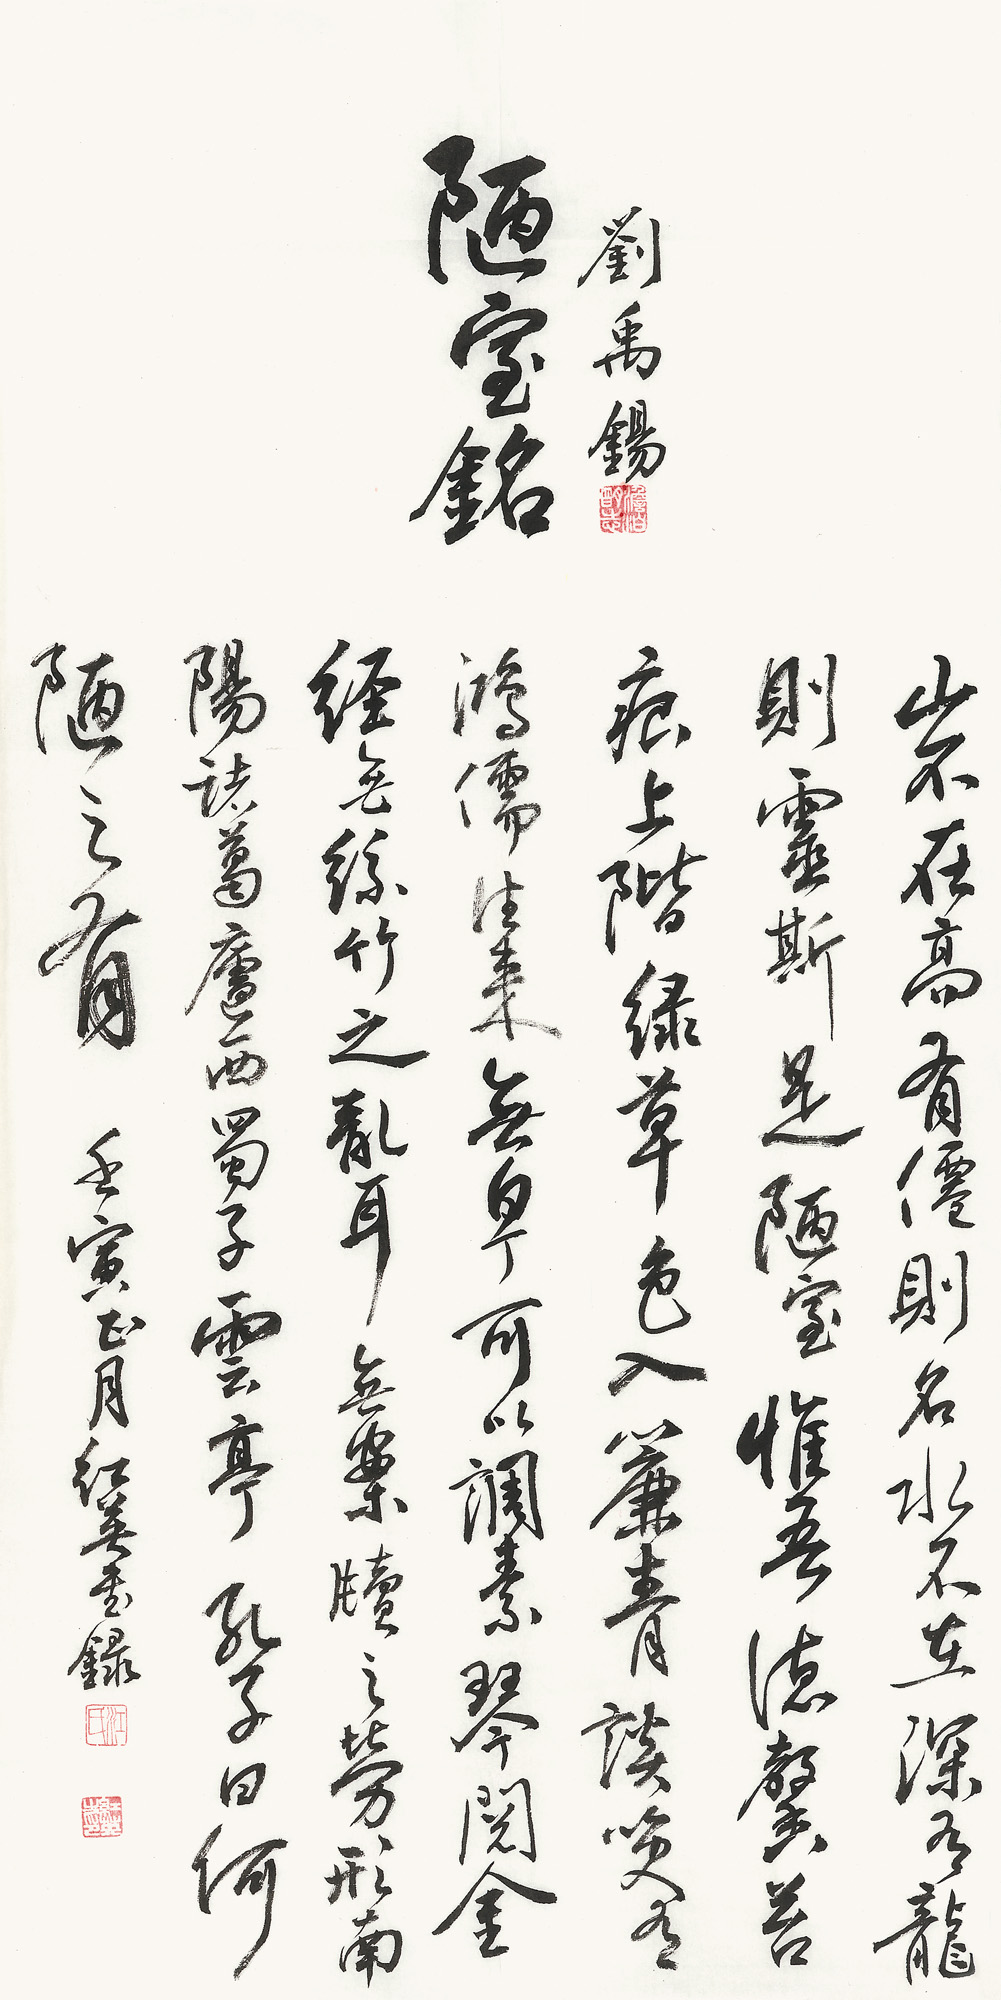 劉禹錫
陋室銘
山不在高有僊則名水不在深有龍
則靈斯是陋室惟吾德馨苔
痕上階緑草色入簾青談笑有
鴻儒往来無白丁可以調素琴閱金
经無絲竹之亂耳無案牘之勞形南
陽諸葛廬西蜀子雲亭孔子曰何
陋之有
壬寅正月紅英書録